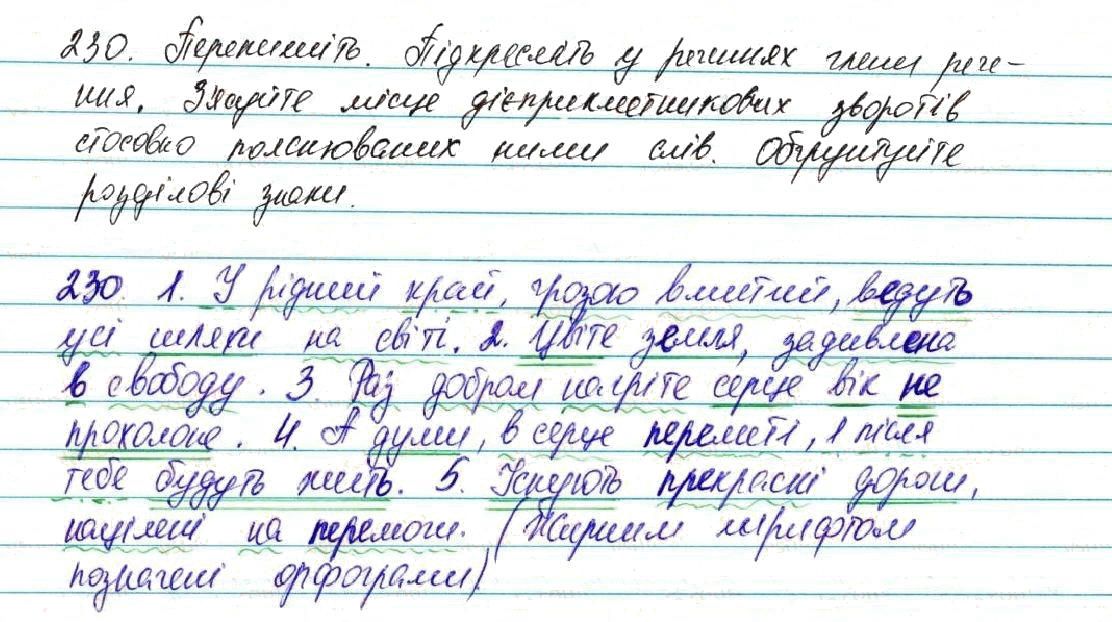 230. Перепишіть. Підкресліть у реченнях члени рече-
ння. З'ясуйте місце дієприкметникових зворотів
стосовно пояснюваних ними слів. Обґрунтуйте
розділові знаки.
230. 1. У рідний край, грозою вмитий, ведуть
усі шляхи на світі. 2. Цвіте земля, задивлена
в свободу. 3. Раз добром налрите серце вік не
прохолоне. 4. А думи, в серце перелиті, і після
тебе будуть жить. 5. Існують прекрасні дороги,
націлені на перемоги. (Жирним шрифтом
позначені орфограми)